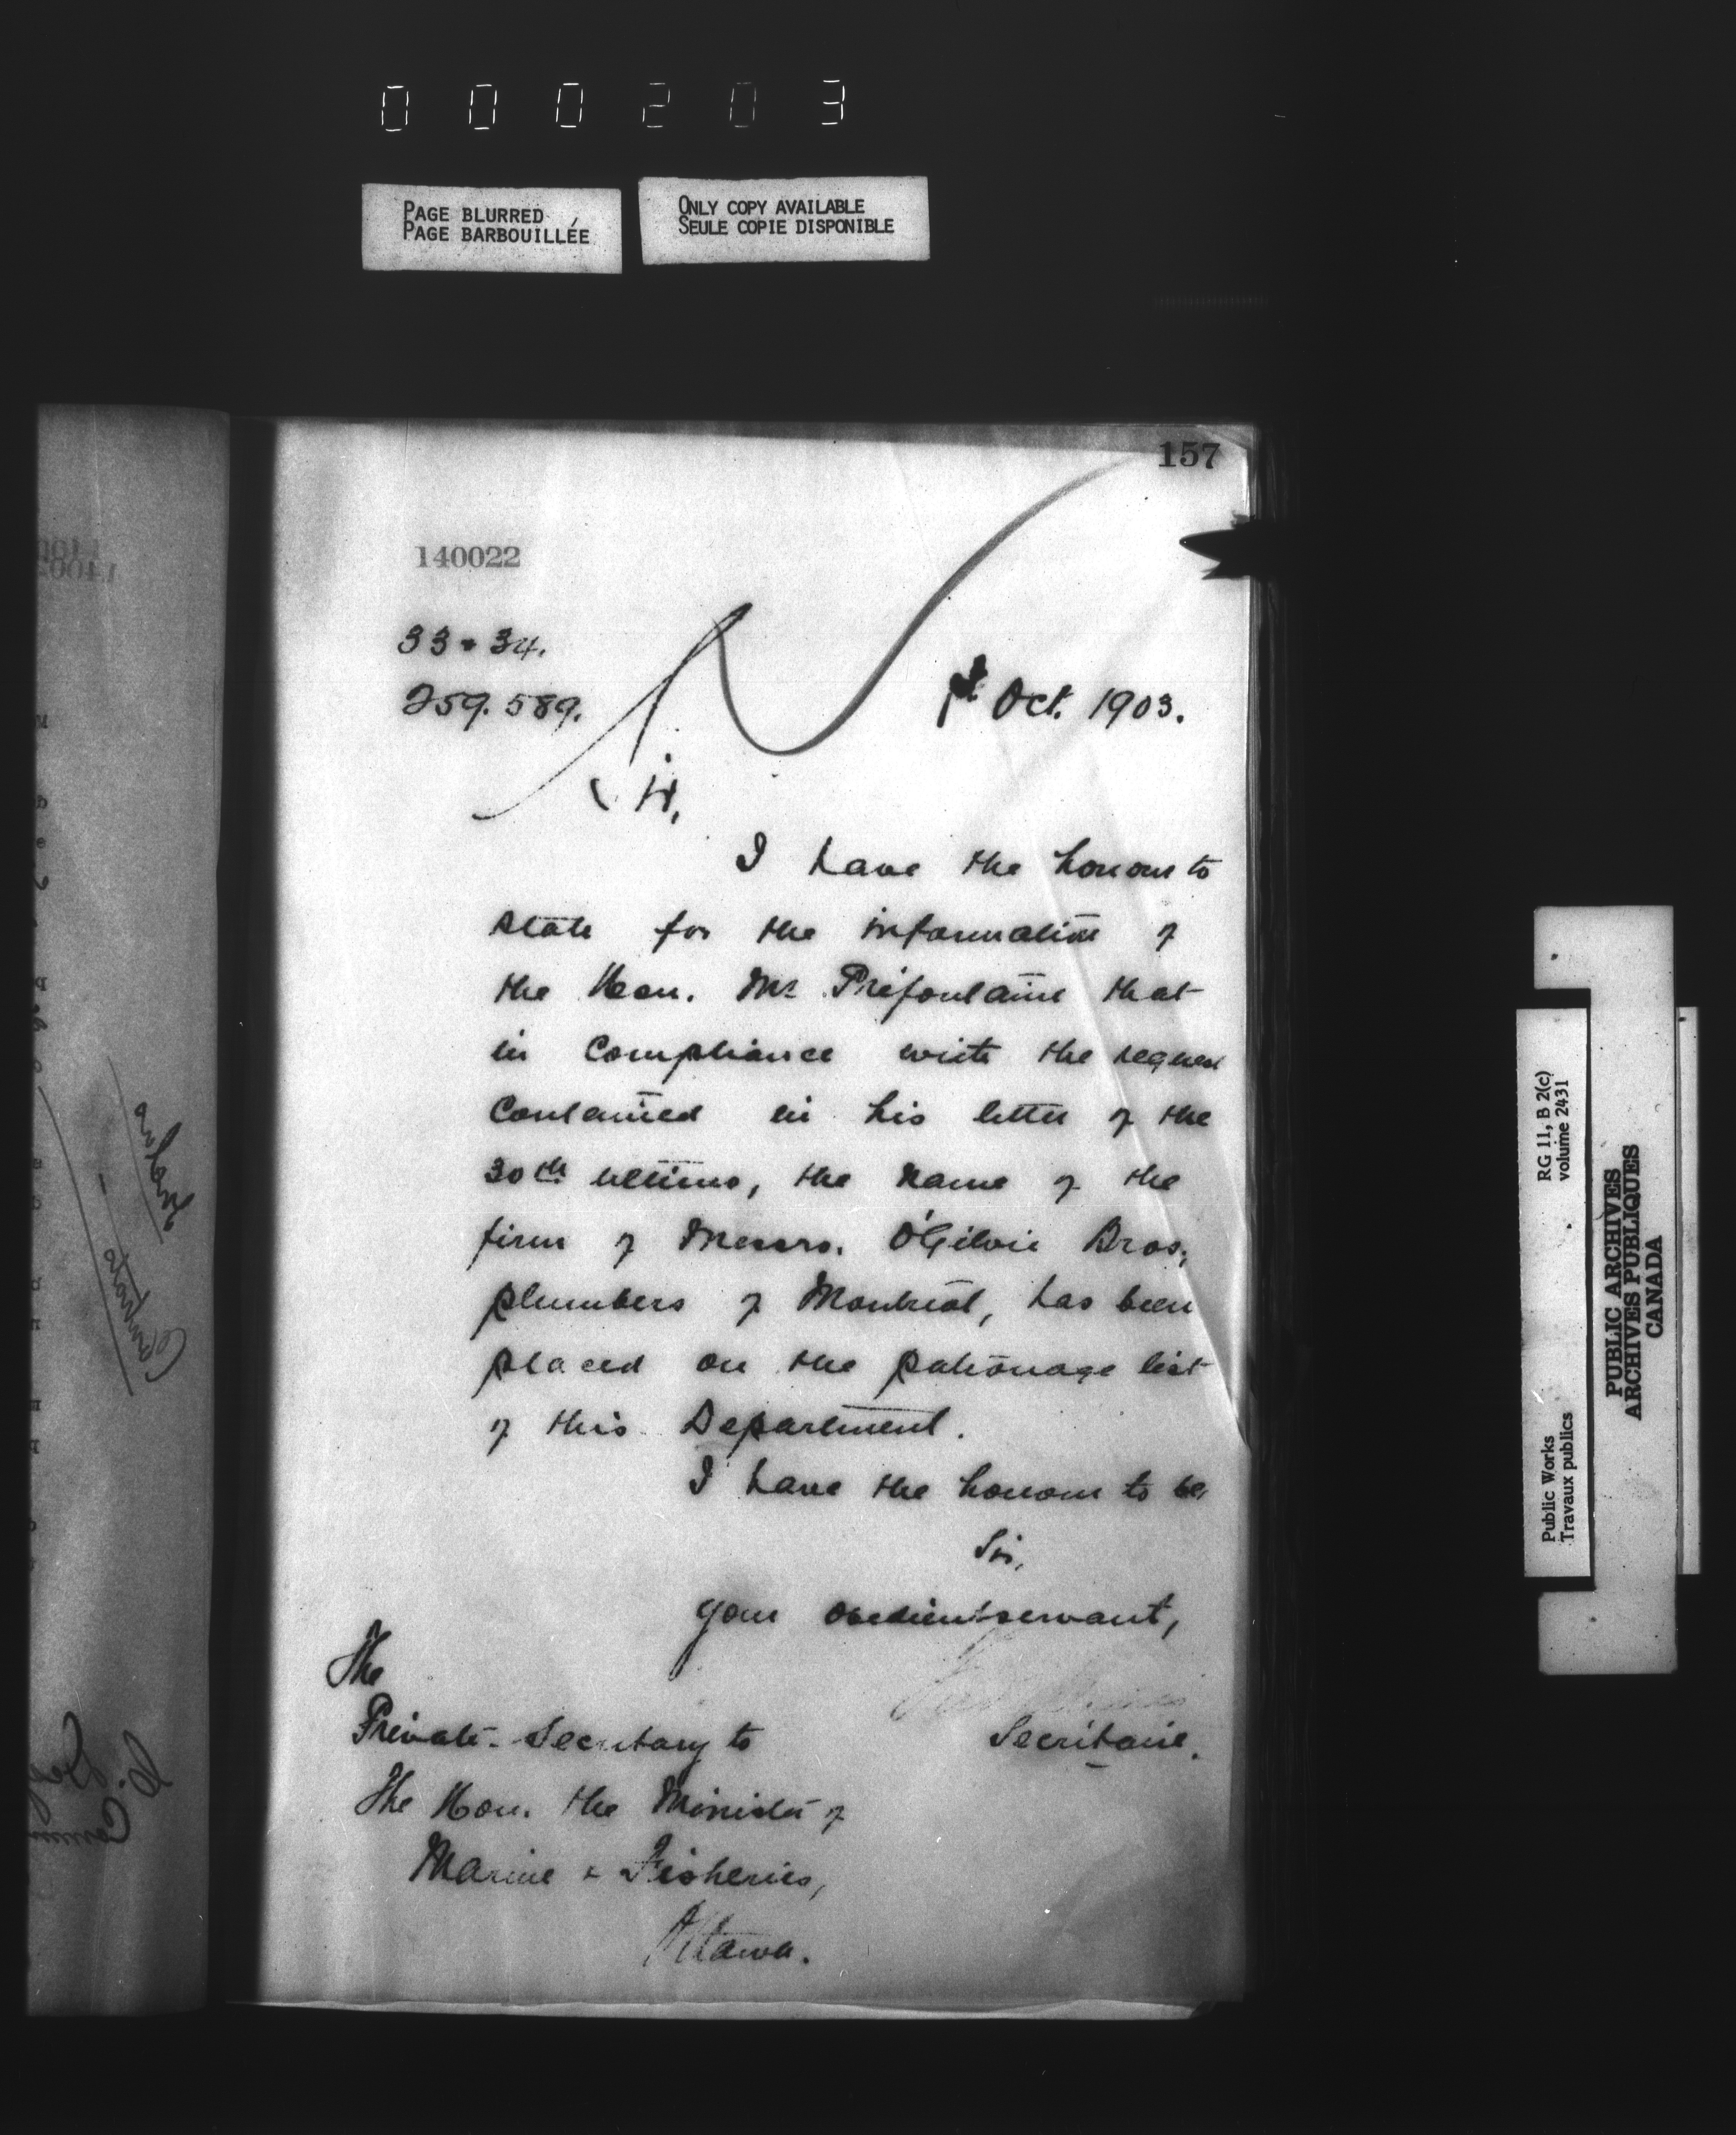 000203
PAGE BLURRED
PAGE BARBOUILLÉE
ONLY COPY AVAILABLE
SEULE COPIE DISPONIBLE
157
140022
33 & 34.
259.589.
1st Oct. 1903.
Sir,
I have the honour to
state for the information of
the Hon. Mr Préfontaine that
in compliance with the request
contained in his letter of the
30th ultimo, the name of the
firm of Messrs. O'Gilvie Bros,
plumbers of Montreal, has been
placed on the patronage list
of this Department.
I have the honour to be,
Sir,
Your obedient servant,
Secrétaire.
The
Private-Secretary to
The Hon. the Minister of
Marine & Fisheries,
Ottawa.
RG 11, B 2(c)
volume 2431
Public Works
Travaux publics
PUBLIC ARCHIVES
ARCHIVES PUBLIQUES
CANADA